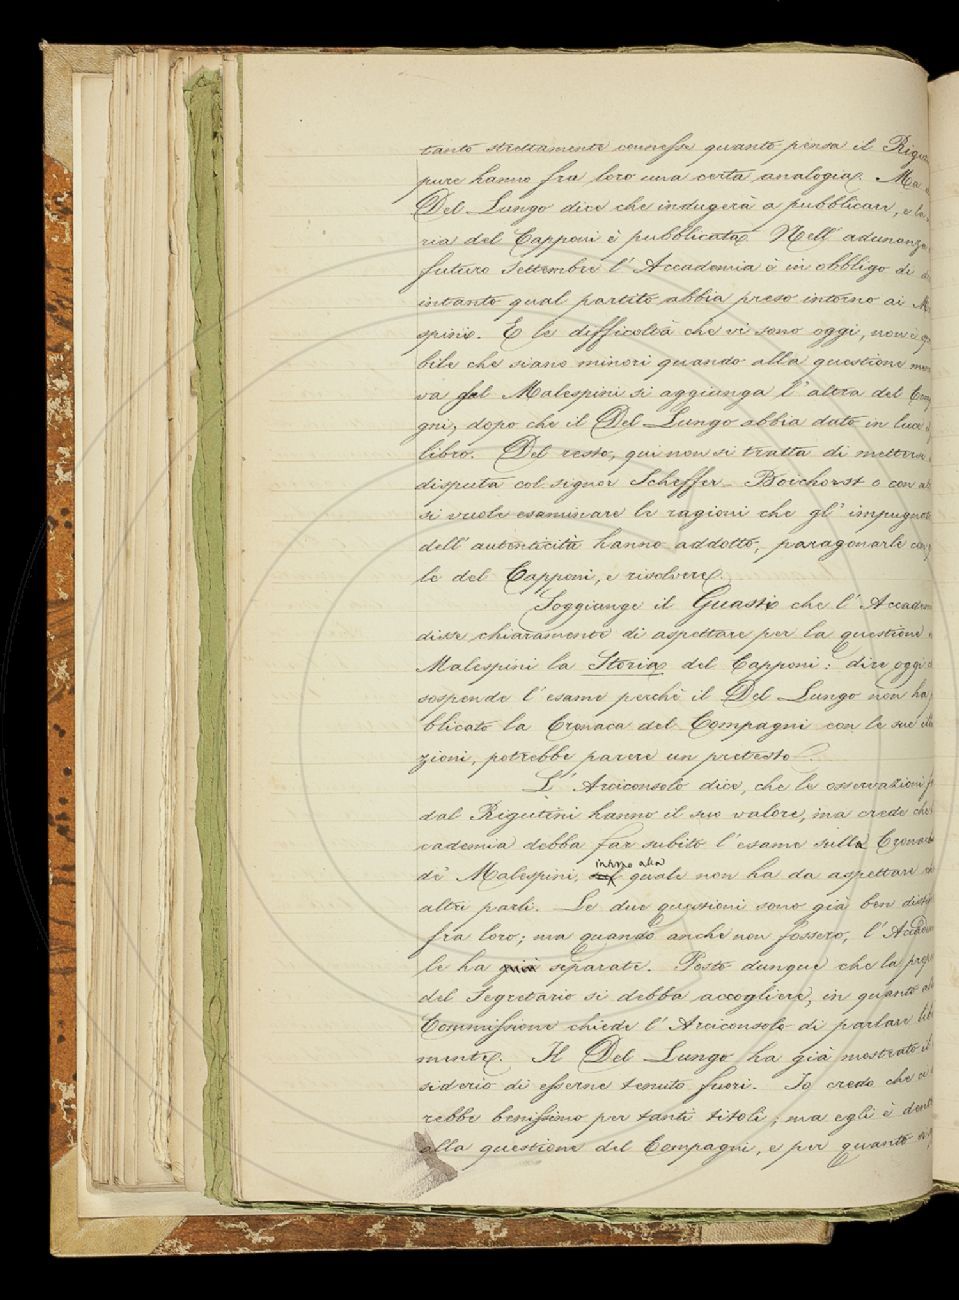 tanto strettamente connessa quanto pensa il Rigu
pure hanno fra loro una certa analogia. Ma
Del Lungo dice che indugerà a pubblicare, e la
ria del Capponi è pubblicata. Nell' adunanza
futuro Settembre l' Accademia è in obbligo di
intanto qual partito abbia preso intorno ai M
spini. E le difficoltà che vi sono oggi, non è
bile che siano minori quando alla questione
va del Malespini si aggiunga l' altra del Com
gni, dopo che il Del Lungo abbia dato in luce
libro. Del resto, qui non si tratta di mettersi
disputa col signor Scheffer-Boichorst o con
si vuole esaminare le ragioni che gl' impugnat
dell' autenticità hanno addotto, paragonarle con
le del Capponi, e risolvere.
Soggiunge il Guasti che l' Accadem
disse chiaramente di aspettare per la questione
Malespini la Storia del Capponi: dire oggi
sospende l' esame perchè il Del Lungo non ha
blicato la Cronaca del Compagni con le sue
zioni, potrebbe parere un pretesto.
L' Arciconsolo dice, che le osservazioni
dal Rigutini hanno il suo valore, ma crede che
cademia debba far subito l' esame sulla Cronac
de' Malespini, intorno alla quale non ha da aspettare
altri parli. Le due questioni sono già ben disti
fra loro; ma quando anche non fossero, l' Accadem
le ha già separate. Posto dunque che la prop
del Segretario si debba accogliere, in quanto alla
Commissione chiede l' Arciconsolo di parlare lib
mente. Il Del Lungo ha già mostrato il
siderio di esserne tenuto fuori. Io credo che ci
rebbe benissimo per tanti titoli; ma egli è dent
alla questione del Compagni, e per quanto